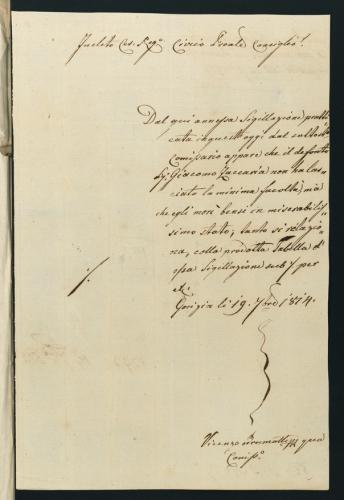 Inclito Ces. Reg.º Civico Prov.le Consiglio!
Dal qui annessa Sigillazione pratti=
cata in quest'oggi dal sottosto
Comissario appare che il defonto
Sig. Giacomo Zuccaria non ha las=
ciato la minima facoltà, mà
che egli morì bensì in miserabilis=
simo stato, tanto si relazio=
na, colla prodotta Tabella d'
essa Sigillazione sub /. per
et.
Gorizia li 19. 7bre 1814.
/.
Vicenzo qua
Comis.º